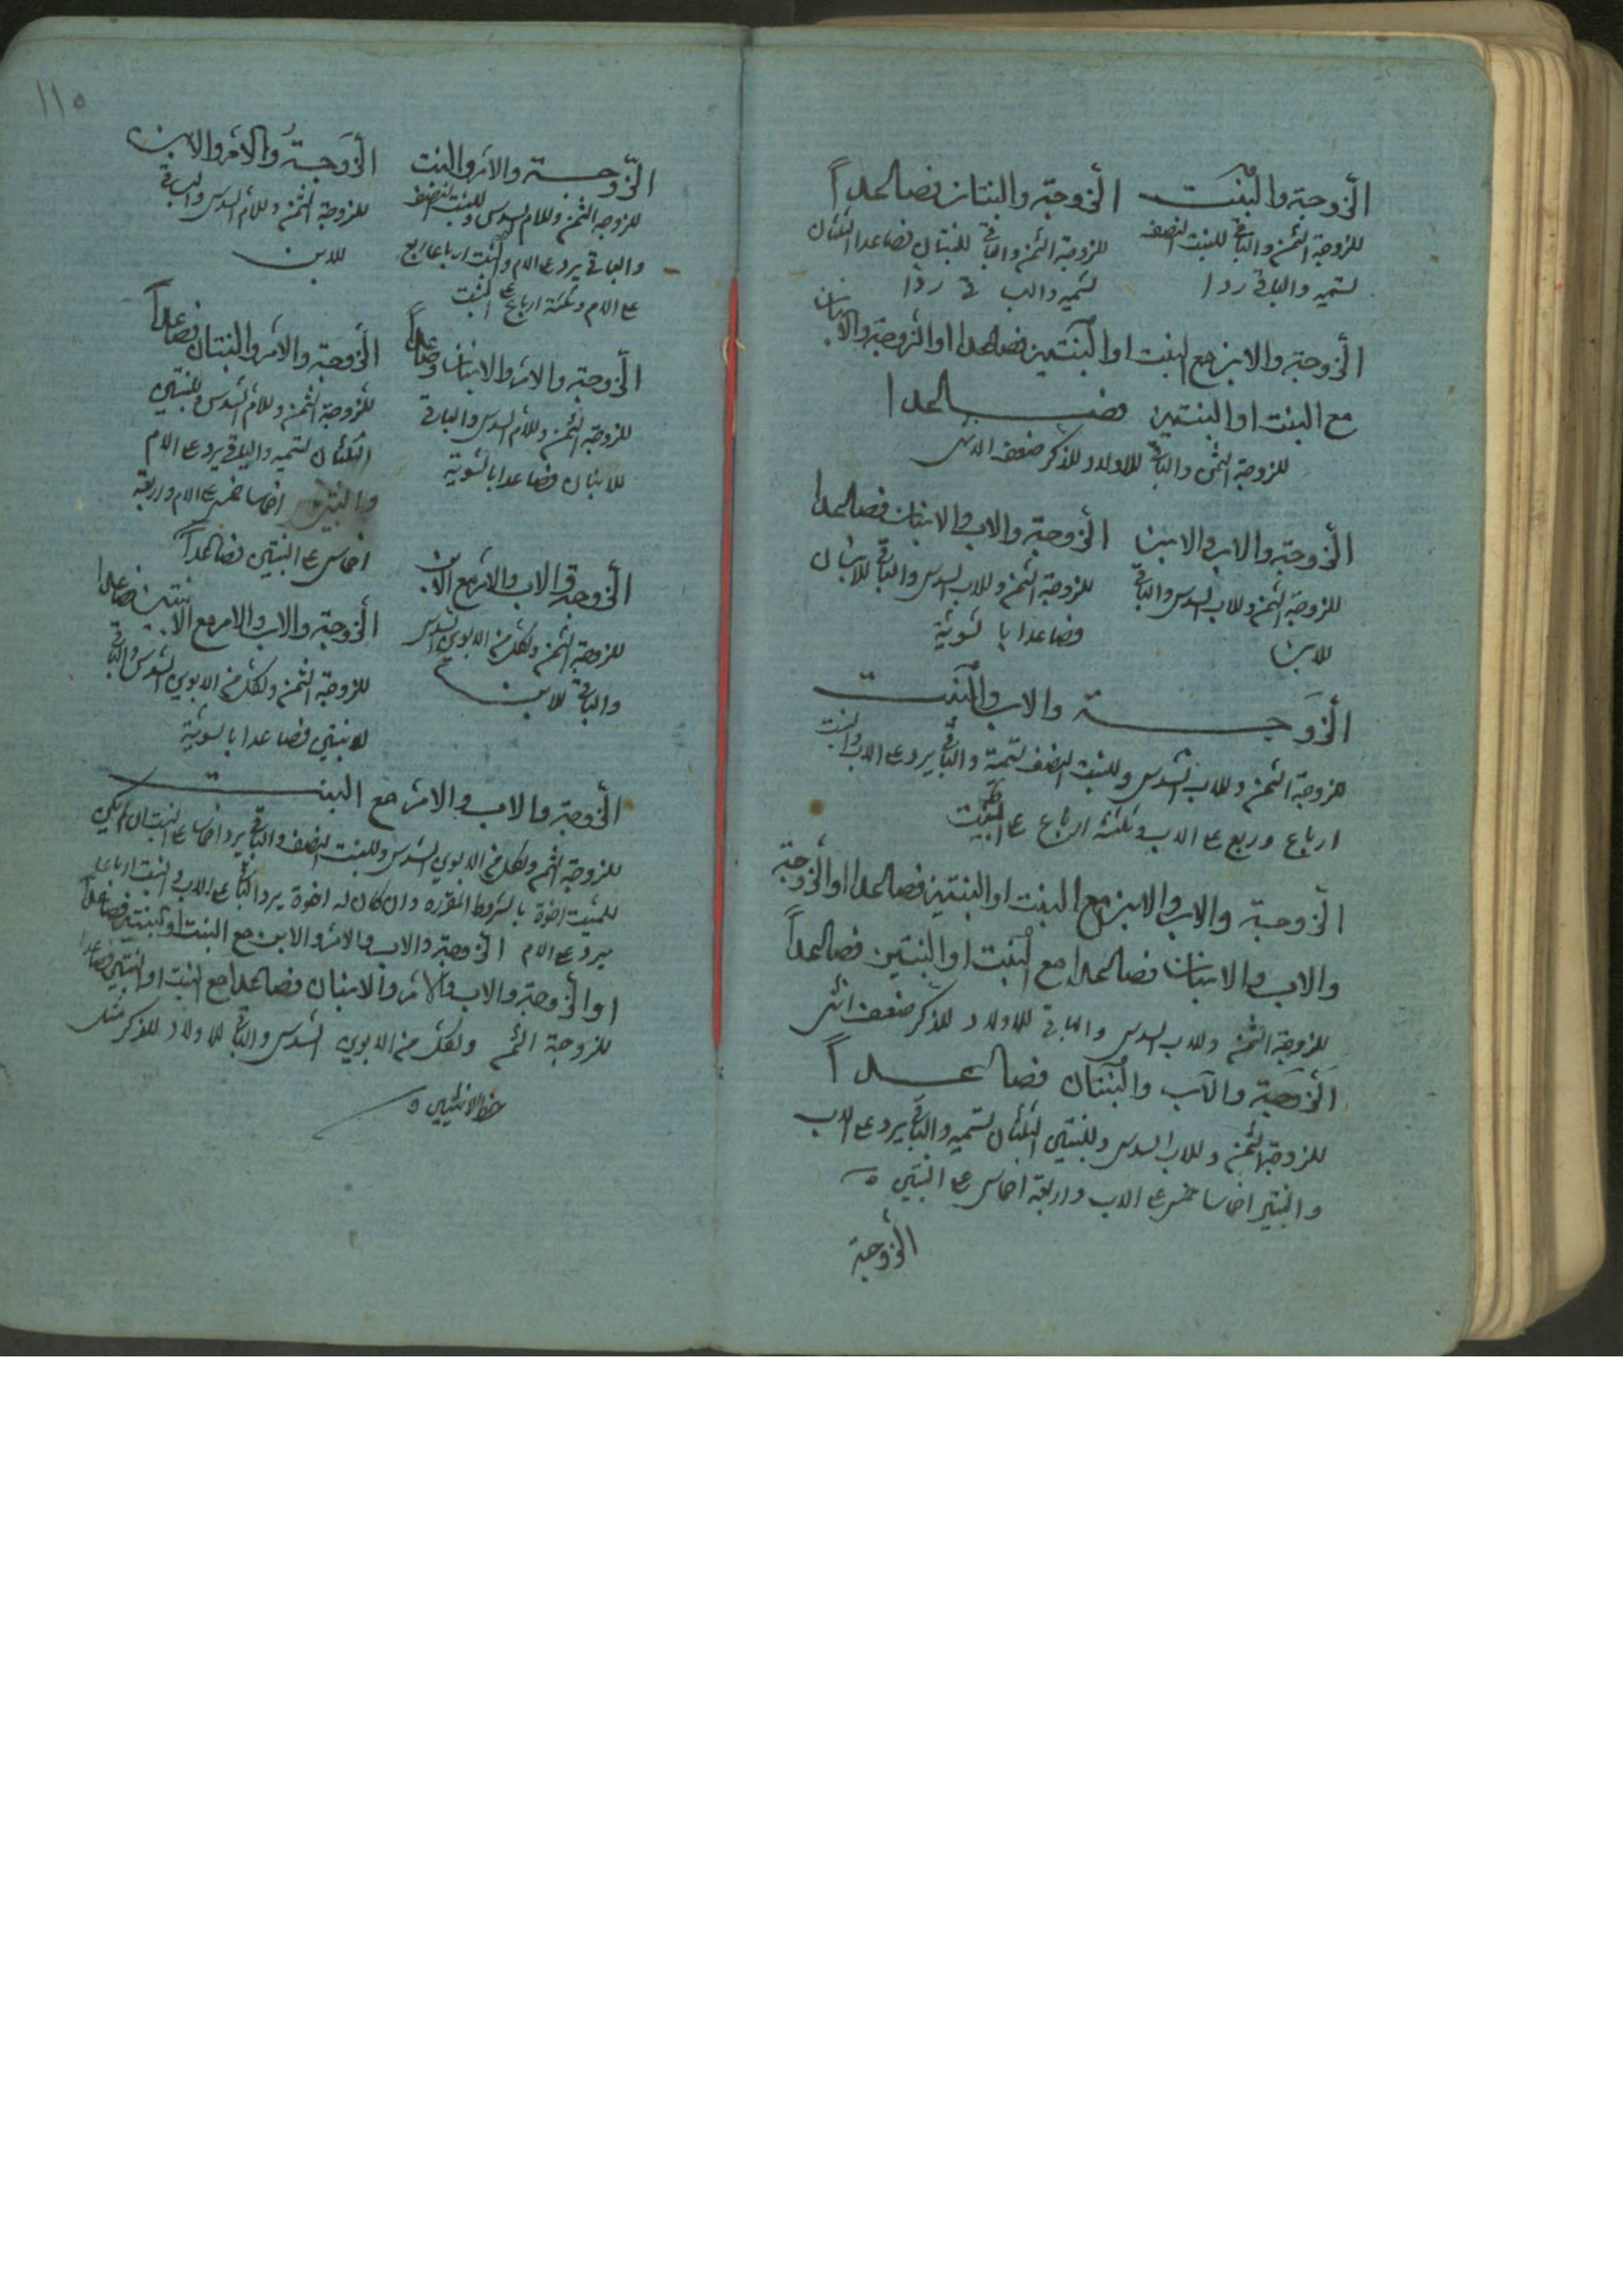 الزوجة والبنت
للزوجة الثمن والباقي للبنت النصف
تسمية والباقي ردا
الزوجة والبنتان فصاعداً
للزوجة الثمن والباقي للبنتان فصاعدا الثلثان
تسمية والباقي ردا
الزوجة والابن مع البنت او البنتين فصاعدا او الزوجة والابنان
مع البنت او البنتين فصاعدا
للزوجة الثمن والباقي للاولاد للذكر ضعف الانثى
الزوجة والاب والابن
للزوجة الثمن وللاب السدس والباقي
للابن
الزوجة والاب والابنان فصاعدا
للزوجة الثمن وللاب السدس والباقي للابنان
فصاعدا بالسوية
الزوجة والاب والبنت
للزوجة الثمن وللاب السدس وللبنت النصف تسمية والباقي يرد على الاب والبنت
ارباع وربع على الاب وثلثة ارباع على البنت
الزوجة والاب والابن مع البنت او البنتين فصاعدا او الزوجة
والاب والابنان فصاعدا مع البنت او البنتين فصاعداً
للزوجة الثمن وللاب السدس والباقي للاولاد للذكر ضعف انثى
الزوجة والاب والبنتان فصاعداً
للزوجة الثمن وللاب السدس وللبنتين الثلثان تسمية والباقي يرد على الاب
والبنتين اخماسا خمس على الاب واربعة اخماس على البنتين
الزوجة
١١٥
الزوجة والام والبنت
للزوجة الثمن وللام السدس وللبنت النصف
والباقي يرد على الام والبنت ارباعا ربع
على الام وثلثة ارباع على البنت
الزوجة والام والابن
للزوجة الثمن وللام السدس والباقي
للابن
الزوجة والام والابنان فصاعداً
للزوجة الثمن وللام السدس والباقي
للابنان فصاعدا بالسوية
الزوجة والام والبنتان فصاعداً
للزوجة الثمن وللام السدس وللبنتين
الثلثان تسمية والباقي يرد على الام
والبنتين اخماسا خمس على الام واربعة
اخماس على البنتين فصاعداً
الزوجة والاب والام مع الابن
للزوجة الثمن ولكل من الابوين السدس
والباقي للابن
الزوجة والاب والام مع الابنين فصاعدا
للزوجة الثمن ولكل من الابوين السدس والباقي
للابنين فصاعدا بالسوية
الزوجة والاب والام مع البنت
للزوجة الثمن ولكل من الابوين السدس وللبنت النصف والباقي يرد اخماسا على البنت ان لم يكن
للميت اخوة بالشروط المقرره وان كان له اخوة يرد الباقي على الاب والبنت ارباعا
يرد على الام الزوجة والاب والام والابن مع البنت او البنتين فصاعداً
او الزوجة والاب والام والابنان فصاعدا مع البنت او البنتين فصاعدا
للزوجة الثمن ولكل من الابوين السدس والباقي للاولاد للذكر مثل
حظ الانثيين